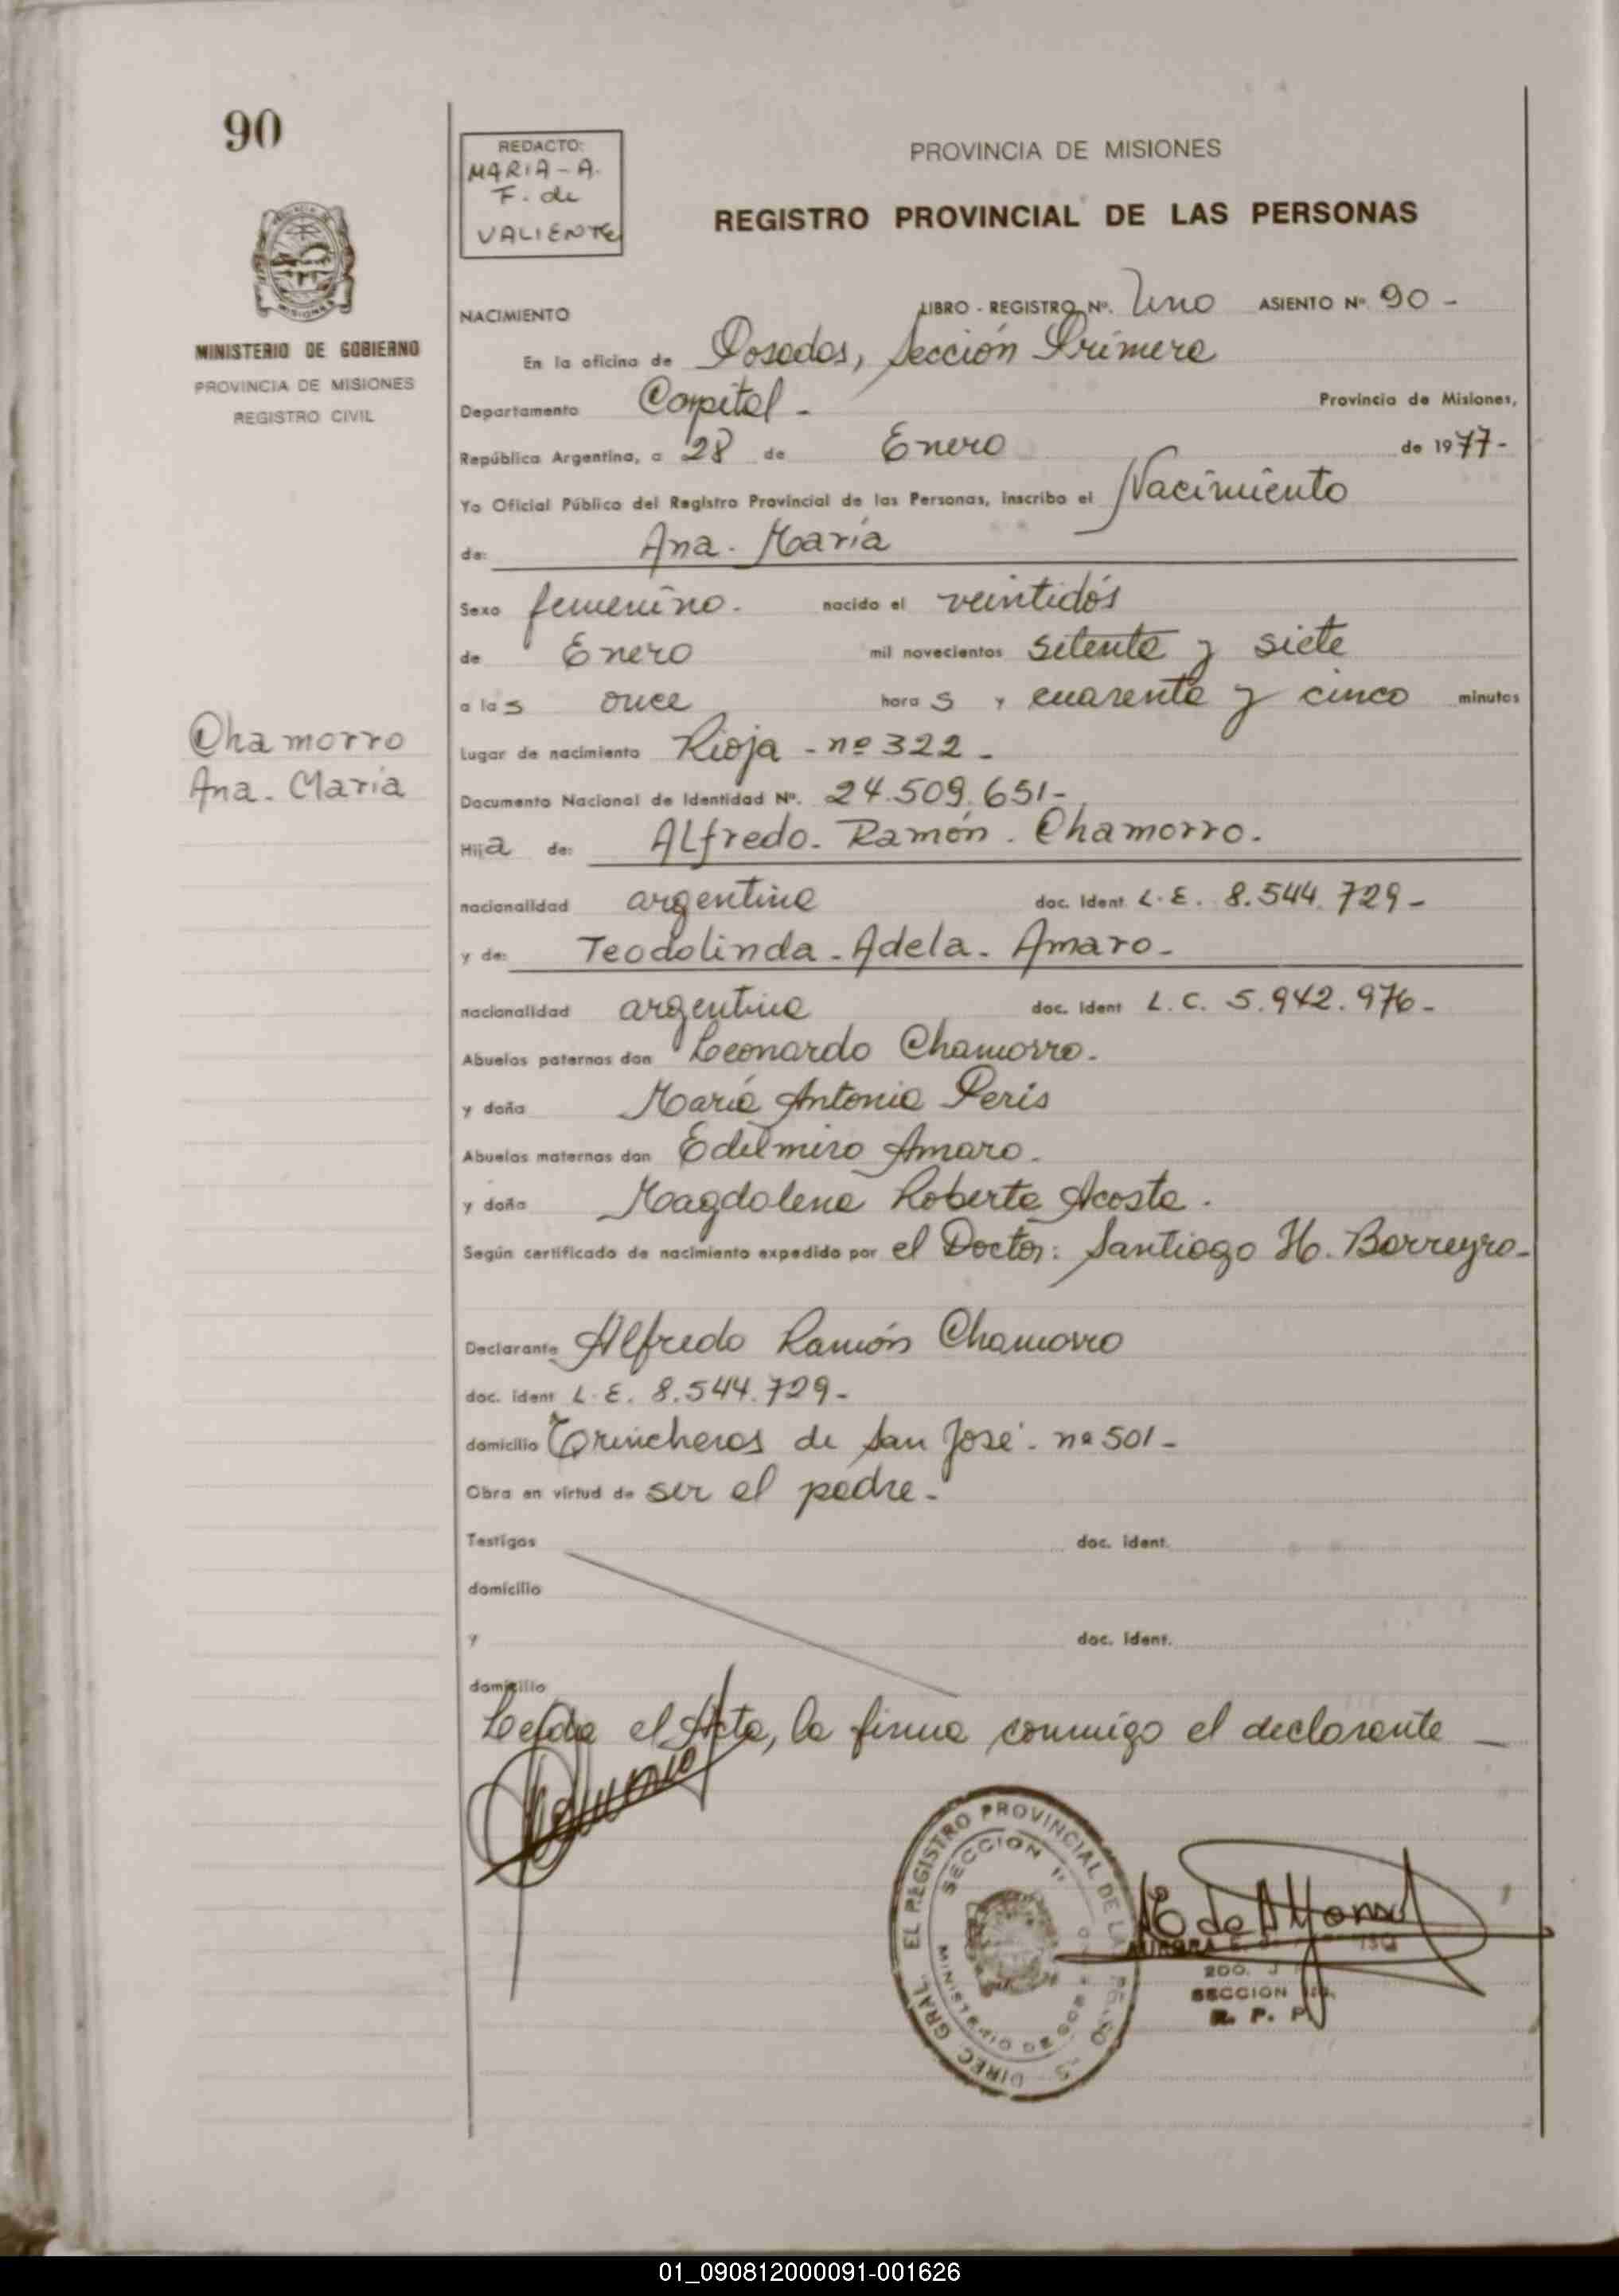 90
REDACTO:
MARIA - A.
F. de
VALIENTE
PROVINCIA DE MISIONES
REGISTRO PROVINCIAL DE LAS PERSONAS
MINISTERIO DE GOBIERNO
PROVINCIA DE MISIONES
REGISTRO CIVIL
NACIMIENTO LIBRO - REGISTRO Nº. Uno ASIENTO Nº 90 -
En la oficina de Posadas, Sección Primera
Departamento Capital - Provincia de Misiones,
República Argentina, a 28 de Enero de 1977-
Yo Oficial Público del Registro Provincial de las Personas, inscribo el Nacimiento
de: Ana - María
Sexo femenino. nacido el veintidós
de Enero mil novecientos setenta y siete
a las once horas y cuarenta y cinco minutos
Chamorro
Ana - María
Lugar de nacimiento Rioja - nº 322 -
Documento Nacional de Identidad Nº. 24.509.651-
Hija de: Alfredo - Ramón - Chamorro.
nacionalidad argentina doc. Ident. L.E. 8.544.729-
y de: Teodolinda - Adela - Amaro-
nacionalidad argentina doc. Ident L.C. 5.942.976-
Abuelos paternos don Leonardo Chamorro.
y doña María Antonia Peris
Abuelos maternos don Edelmiro Amaro.
y doña Magdalena Roberta Acosta.
Según certificado de nacimiento expedido por el Doctor: Santiago H. Barreyro-
Declarante Alfredo Ramón Chamorro
doc. ident L.E. 8.544.729-
domicilio Trincheras de San José - nº 501-
Obra en virtud de ser el padre-
Testigos doc. ident.
domicilio
y doc. Ident.
domicilio
Leída el Acta, la firma conmigo el declarante
DIREC. GRAL. EL REGISTRO PROVINCIAL DE LA
SECCION 1ª
SECCION
R. P. P.
01_090812000091-001626